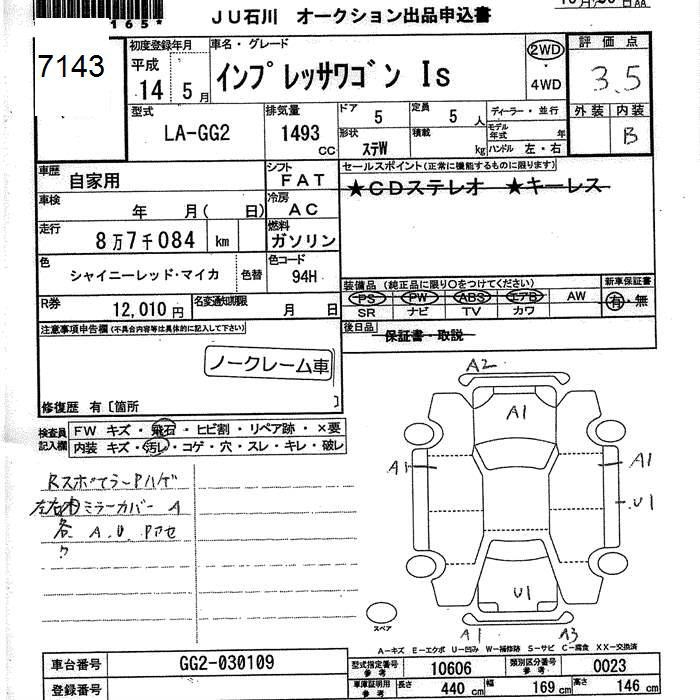 165*
JU石川 オークション出品申込書
7143
初度登録年月 車名・グレード 評価点
平成 14 5月
インプレッサワゴン Is
2WD ・ 4WD
3.5
型式 排気量 ドア 定員 ディーラー・並行 外装 内装
LA-GG2 1493 CC 5 5人 モデル年式 年
形状 ステW 積載 kg ハンドル 左・右 B
車歴 自家用 シフト FAT セールスポイント(正常に機能するものに限ります)
★CDステレオ ★キーレス
車検 年 月( 日) 冷房 AC
走行 8万7千084 km 燃料 ガソリン
色 シャイニーレッド・マイカ 色替 色コード 94H
装備品(純正品に限り○をつけてください) 新車保証書
PS PW ABS エアB AW 有・無
SR ナビ TV カワ
R券 12,010円 名変通知期限 月 日
後日品 保証書・取説
注意事項申告欄(不具合内容等は具体的に記入して下さい)
ノークレーム車
修復歴 有〔箇所 〕
検査員記入欄 FW キズ・飛石・ヒビ割・リペア跡・×要
内装 キズ・汚レ・コゲ・穴・スレ・キレ・破レ
RスポイラーPハゲ
ミラーカバー A
各 A.U.
A2
A1
A1 A1
U1
U1
スペア
A1 A3
A-キズ E-エクボ U-凹み W-補修跡 S-サビ C-腐食 XX-交換済
車台番号 GG2-030109
型式指定番号 参考 10606 類別区分番号 参考 0023
登録番号
車庫証明用 参考 長さ 440 cm 幅 169 cm 高さ 146 cm